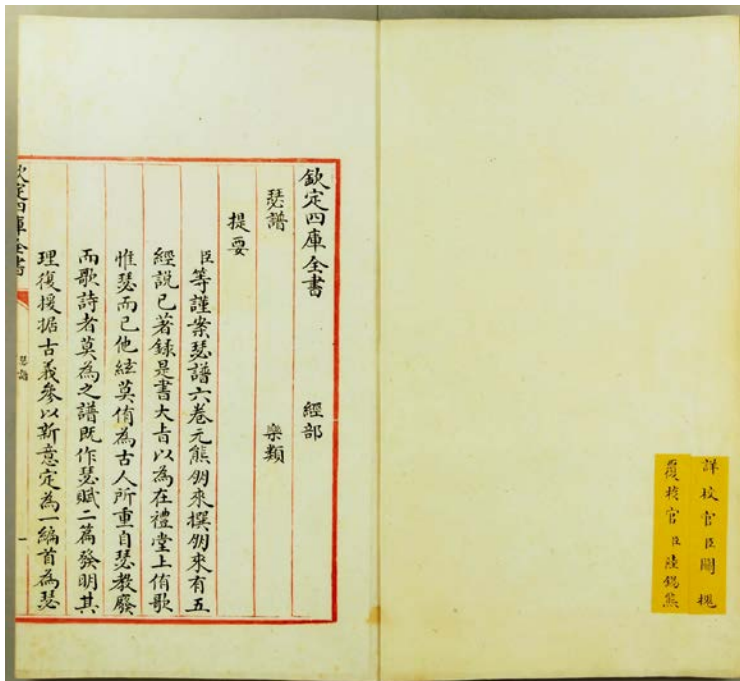 詳校官臣關槐
覆校官臣陸錫熊
欽定四庫全書 經部
瑟譜 樂類
提要
臣等謹案瑟譜六卷元熊朋來撰朋來有五
經說已著録是書大㫖以為在禮堂上侑歌
惟瑟而已他絃莫侑為古人所重自瑟教廢
而歌詩者莫為之譜既作瑟賦二篇發明其
理復援据古義參以新意定為一編首為瑟
欽定四庫全書
瑟譜
一